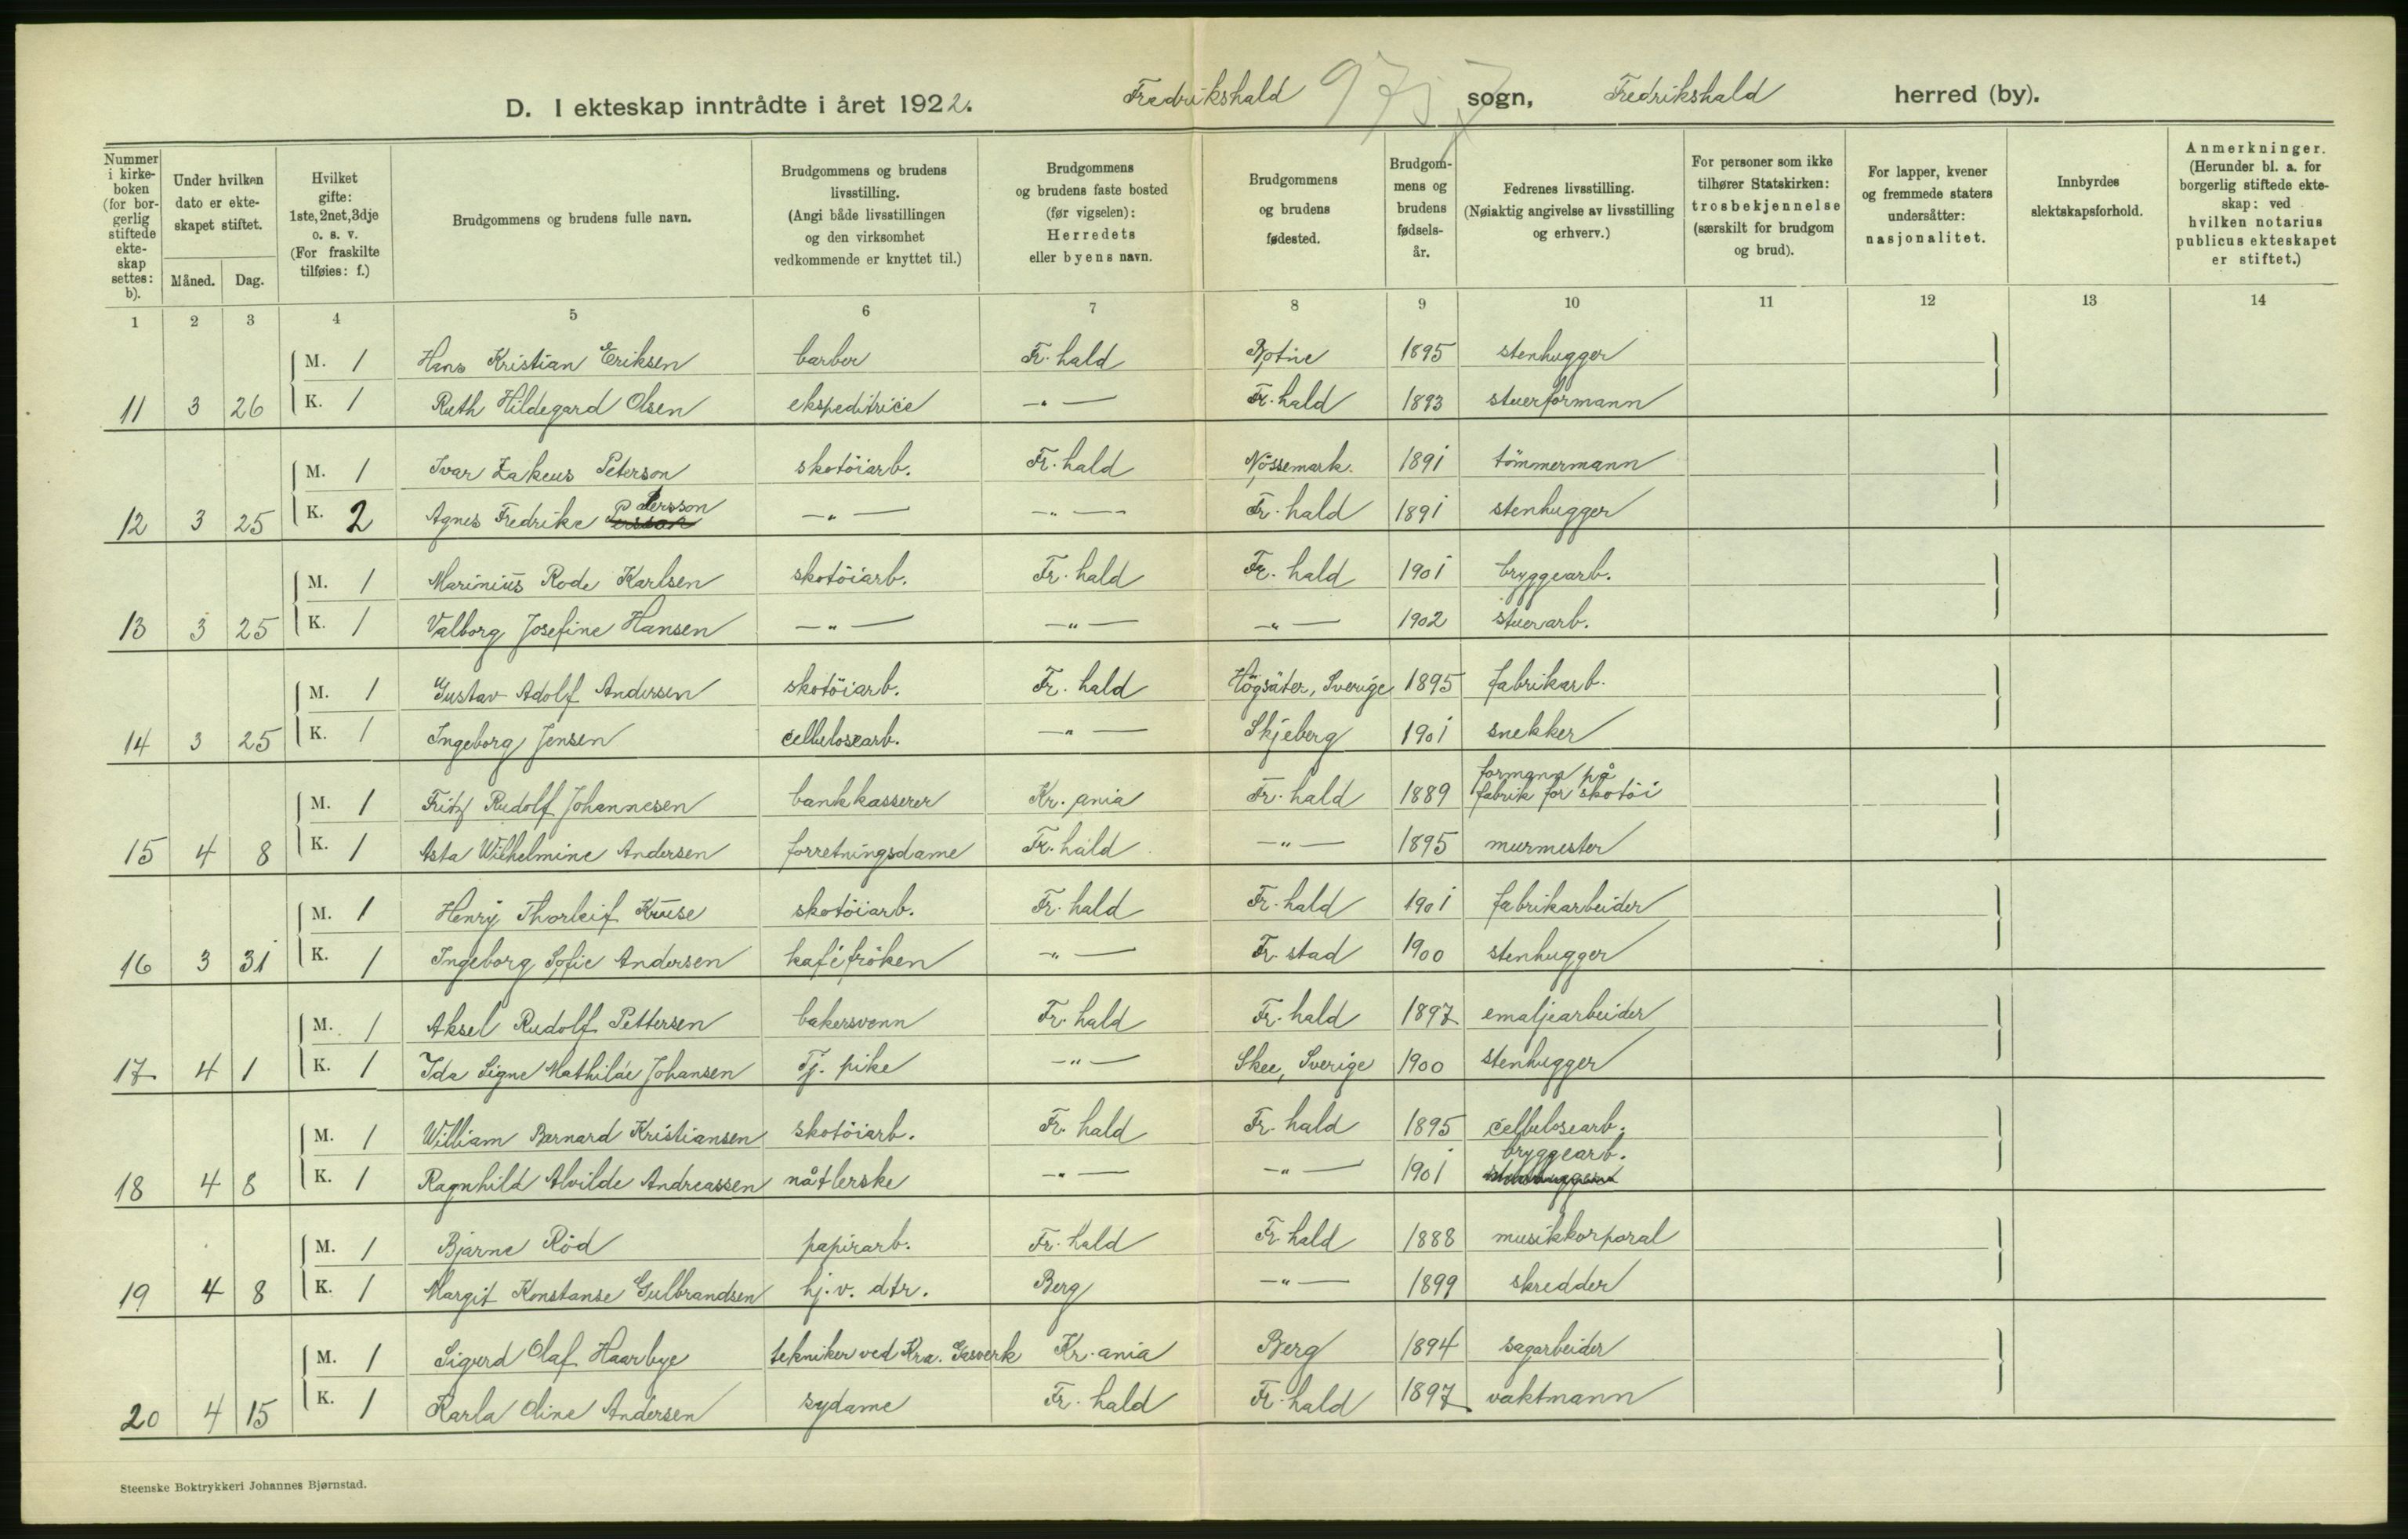 D. I ekteskap inntrådte i året 1922. Fredrikshald sogn, Fredrikshald herred (by).
Nummer i kirkeboken (for borgerlig stiftede ekteskap settes: b).
Under hvilken dato er ekteskapet stiftet.
Måned. Dag.
Hvilket gifte: 1ste, 2net, 3dje o. s. v. (For fraskilte tilføies: f.)
Brudgommens og brudens fulle navn.
Brudgommens og brudens livsstilling. (Angi både livsstillingen og den virksomhet vedkommende er knyttet til.)
Brudgommens og brudens faste bosted (før vigselen): Herredets eller byens navn.
Brudgommens og brudens fødested.
Brudgommens og brudens fødselsår.
Fedrenes livsstilling. (Nøiaktig angivelse av livsstilling og erhverv.)
For personer som ikke tilhører Statskirken: trosbekjennelse (særskilt for brudgom og brud).
For lapper, kvener og fremmede staters undersåtter: nasjonalitet.
Innbyrdes slektskapsforhold.
Anmerkninger. (Herunder bl. a. for borgerlig stiftede ekteskap: ved hvilken notarius publicus ekteskapet er stiftet.)
1 2 3 4 5 6 7 8 9 10 11 12 13 14
M. 1 Hans Kristian Eriksen barber Fr. hald Botne 1895 stenhugger
11 3 26 K. 1 Ruth Hildegard Olsen ekspeditrice -"- Fr. hald 1893 stuerformann
M. 1 Ivar Zakeus Peterson skotöiarb. Fr. hald Nössemark. 1891 tömmermann
12 3 25 K. 2 Agnes Fredrike Persson -"- -"- Fr. hald 1891 stenhugger
M. 1 Marinius Rode Karlsen skotöiarb. Fr. hald Fr. hald 1901 bryggearb.
13 3 25 K. 1 Valborg Josefine Hansen -"- -"- -"- 1902 stuerarb.
M. 1 Gustav Adolf Andersen skotöiarb. Fr. hald Högsäter, Sverige 1895 fabrikarb.
14 3 25 K. 1 Ingeborg Jensen cellulosearb. -"- Skjeberg 1901 snekker
M. 1 Fritz Rudolf Johannesen bankkasserer Kr. ania Fr. hald 1889 formann på fabrik for skotöi
15 4 8 K. 1 Asta Wilhelmine Andersen forretningsdame Fr. hald -"- 1895 murmester
M. 1 Henry Thorleif Kruse skotöiarb. Fr. hald Fr. hald 1901 fabrikarbeider
16 3 31 K. 1 Ingeborg Sofie Andersen kaféfröken -"- Fr. stad 1900 stenhugger
M. 1 Aksel Rudolf Pettersen bakersvenn Fr. hald Fr. hald 1897 emaljearbeider
17 4 1 K. 1 Ida Signe Mathilde Johansen Tj. pike -"- Skee, Sverige 1900 stenhugger
M. 1 William Bernard Kristiansen skotöiarb. Fr. hald Fr. hald 1895 cellulosearb.
18 4 8 K. 1 Ragnhild Alvilde Andreassen nåtlerske -"- -"- 1901 bryggearb.
M. 1 Bjarne Röd papirarb. Fr. hald Fr. hald 1888 musikkorporal
19 4 8 K. 1 Margit Konstanse Gulbrandsen hj. v. dtr. Berg -"- 1899 skredder
M. 1 Sigurd Olaf Haarbye tekniker ved Kra. Gasverk Kr. ania Berg 1894 sagarbeider
20 4 15 K. 1 Karla Oline Andersen sydame Fr. hald Fr. hald 1897 vaktmann
Steenske Boktrykkeri Johannes Bjørnstad.